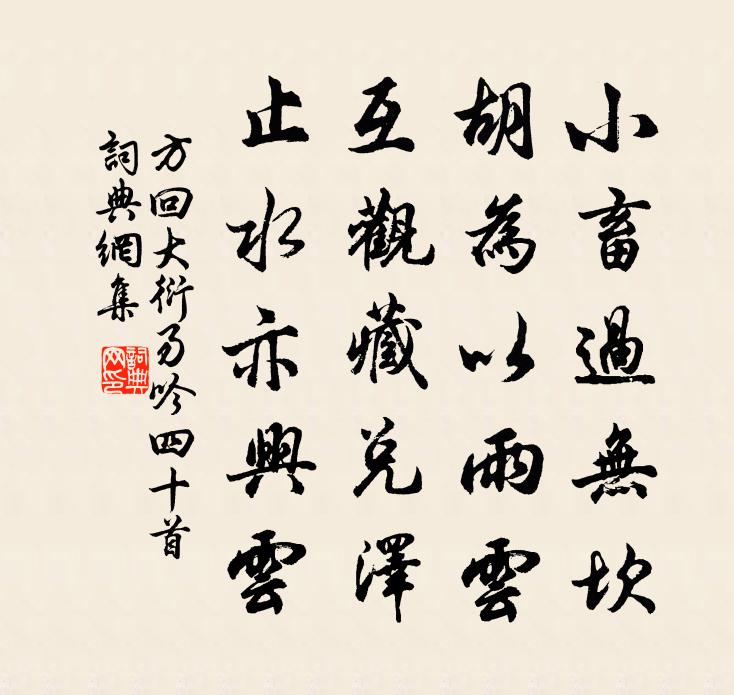 小畜過無坎
胡為以雨雲
互觀藏兌澤
止水亦興雲
方回大衍易吟四十首
詞典網集
詞典網印